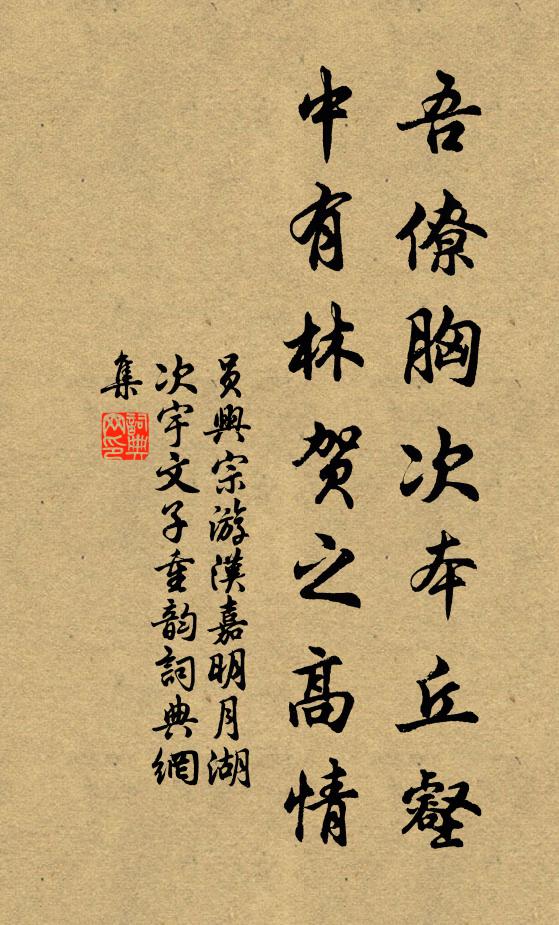 吾僚胸次本丘壑
中有林贺之高情
员興宗游漢嘉明月湖
次宇文子重韵詞典網
集
詞典
网印